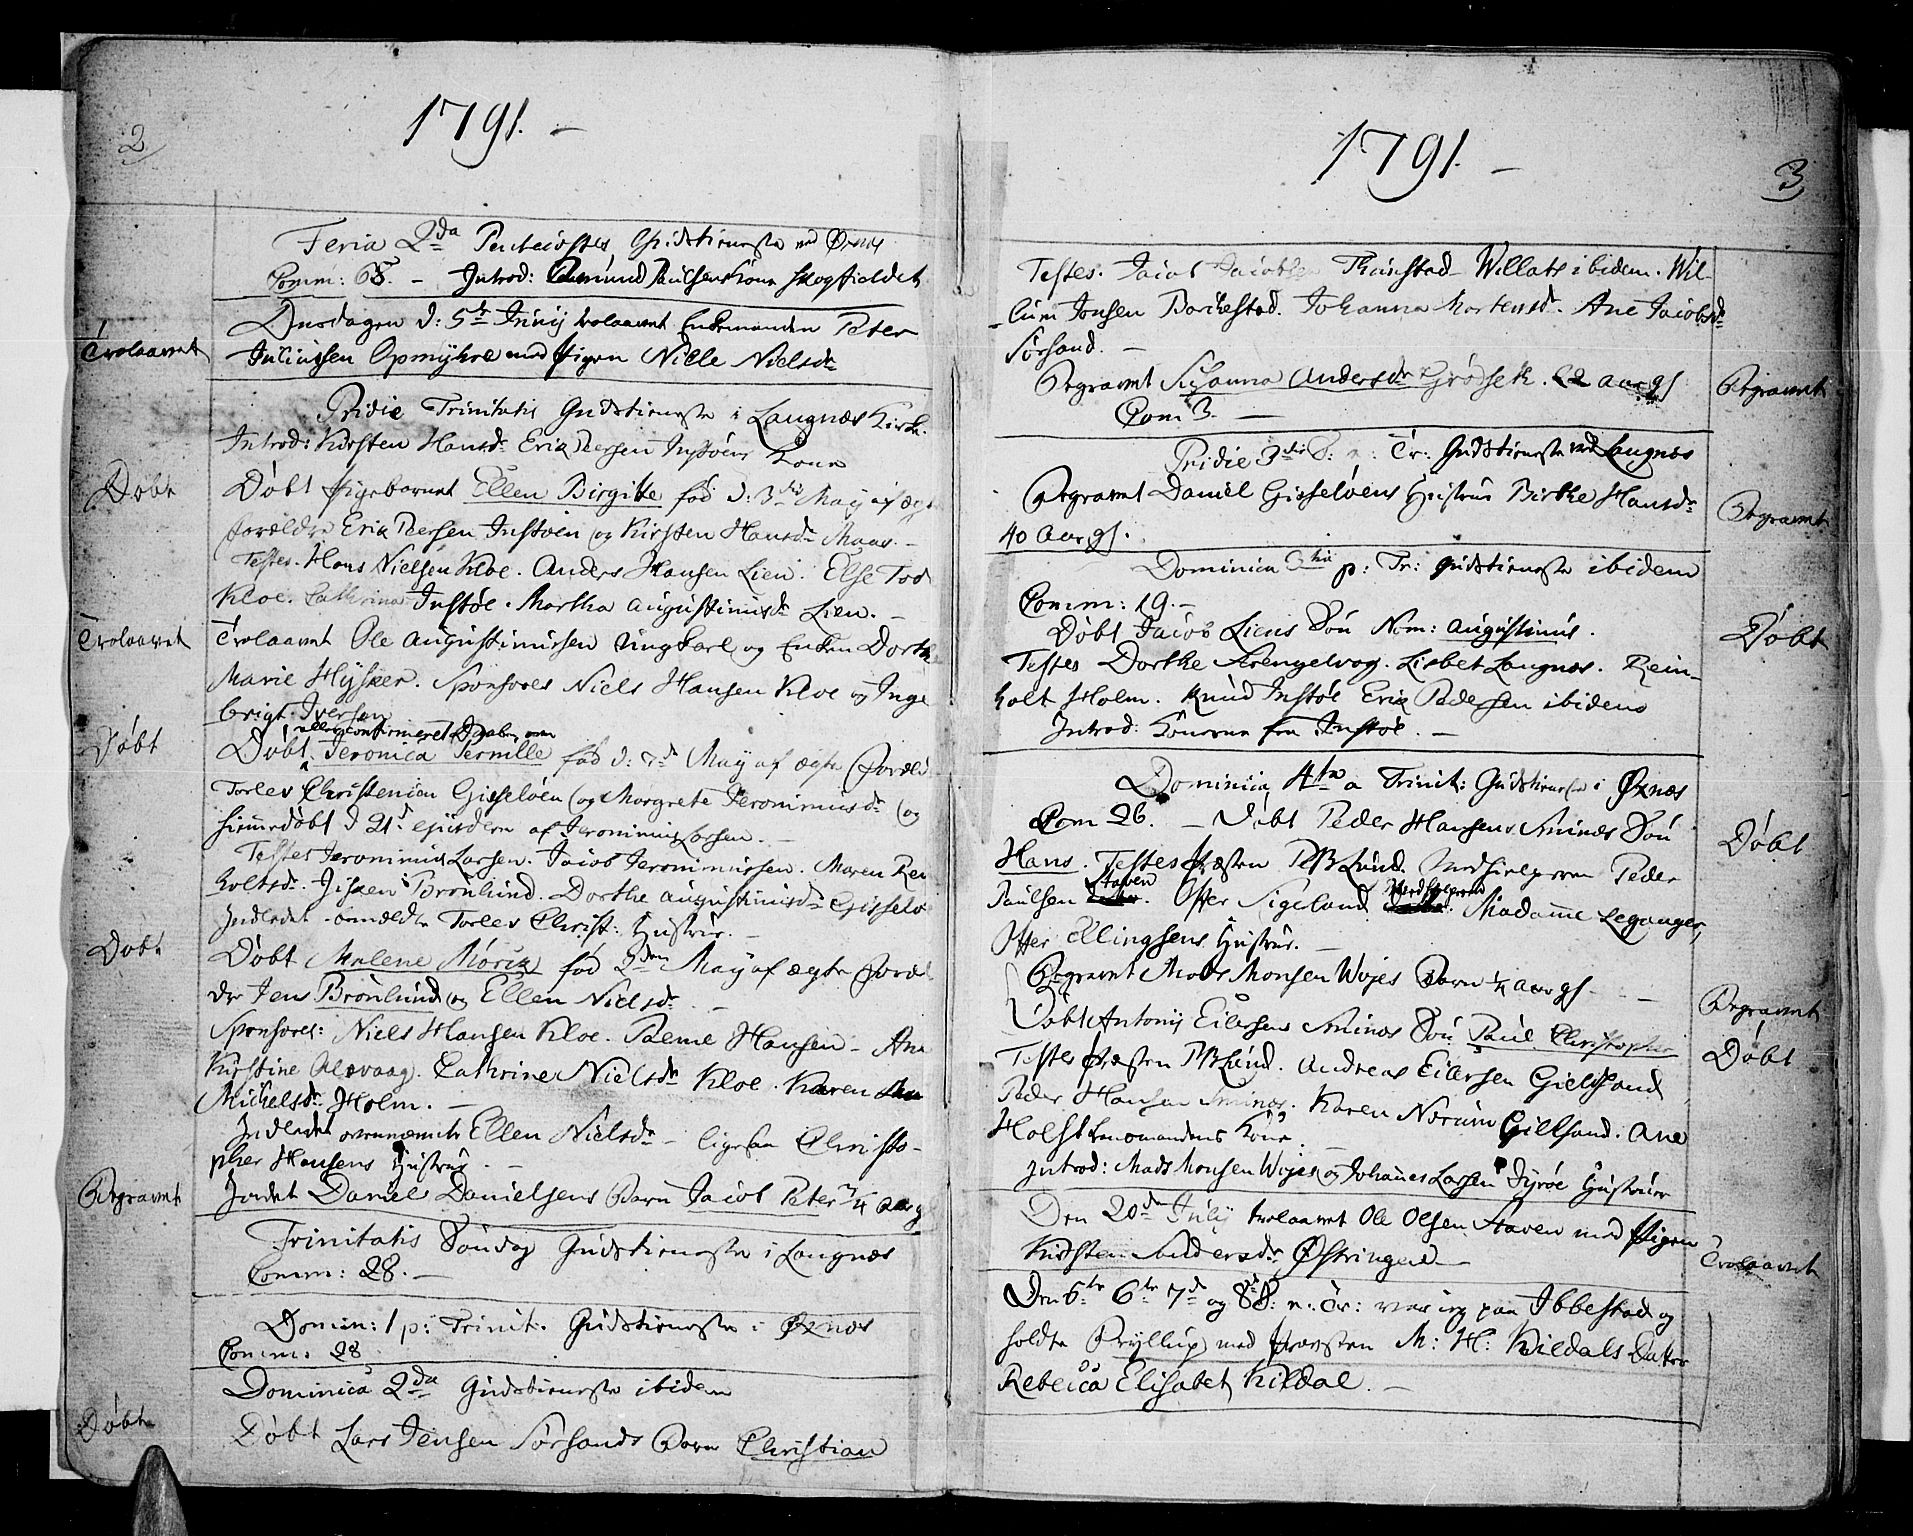 2
1791. –
Feria 2da Pentecostes Gudstieneste ved Øxnes
Comm: 68. – Introd: Amund Paulsens Kone Skogfieldet
Onsdagen d: 5te Juny trolovet Enkemanden Peter
Trolovet
Juliussen Opmyhre med Pigen Nille Nielsdr
Pridie Trinitatis Gudstieneste i Langnæs Kirke.
Introd: Kirsten Hansdr Erik Persen Instøens Kone
Døbt
Døbt Pigebarnet Ellen Birgitte fød d: 3die May af ægte
forældre Erik Peersen Instøen og Kirsten Hansdr Maas. –
Testes. Hans Nielsen Kloe. Anders Hansen Lien. Else Tod
Kloe. Cathrina Instøe. Martha Augustinusdr Lien. –
Trolovet
Trolovet Ole Augustinussen Ungkarl og Enken Dorthe
Marie Hysker. Sponsores Niels Hansen Kloe og Inge
brigt Iversen
Døbt
eller confirmeret Daaben over
Døbt Jeronica Pernille fød d: May af ægte Foræld
Torles Christensen Gisseløen og Margrete Jeronimusdr og
hiemmedøbt d 21de ejusdem af Jeronimus Larsen. –
Testes Jeronimus Larsen. Jacob Jeronimussen. Maren Rei
holtsdr. Jisken Brønlund. Dorthe Augustinusdr Gisselø
Indledet anmeldte Torles Christ: Hustrue. –
Døbt
Døbt Malene Mørck fød 2den May af ægte Foræl
dre Jens Brønlund og Ellen Nielsdr. –
Sponsores: Niels Hansen Kloe. Hansen – Ane
Kirstine Alsvaag. Cathrine Nielsdr Kloe. Karen
Michelsdr Holm. –
Indledet overnævnte Ellen Nielsdr – ligesaa Christo-
pher Hansens Hustrue. –
Begravet
Jordet Daniel Danielsens Barn Jacob Peter 3/4 aar g
Trinitatis Søndag Gudstieneste i Langnæs
Comm: 28. –
Domin: 1 p: Trinit. Gudstieneste i Øxnæs
Comm: 28
Dominica 2da Gudstieneste ibidem
Døbt
Døbt Lars Jensen Sørsands Barn Christian
1791. –
3
Testes. Jacob Jacobsen Tunstad – Willats ibidem. Wil-
lum Jonsen Barkestad. Johanna Mortensd. Ane Jacobsdr
Sørsand. –
Begravet
Begravet Susanna Andersdr Grødsetk. 22 aar gl
Com 3. –
Pridie 3die S: p: Tr: Gudstieneste ved Langnæs
Begravet
Begravet Daniel Gisseløens Hustrue Birthe Hansdr
40 Aar gl.
Dominica 3tia p: Tr: Gudstieneste ibidem
Comm: 19. –
Døbt
Døbt Jacob Liens Søn Nom: Augustinus.
Testes Dorthe Strengelvog. Lisbet Langnæs. Rein-
holt Holm. Knud Instøe Erik Pedersen ibidem
Introd: Konerne fra Instøe. –
Dominica 4ta a Trinit: Gudstieneste i Øxnæs
Døbt
Com 26. – Døbt Peder Hansens Sminæs Søn
Hans. Testes Præsten P B Lund. Medhielperen Peder
Paulsen Staven. Offer Sigeland Medhielperen. Madamme Leganger,
Offer Ellingsens Hustrue. –
Begravet
Begravet Mads Monsen Wojes Barn 1/4 aar gl. –
Døbt
Døbt Antony Eilersens Sminæs Søn Paul Christopher
Testes Præsten P B Lund. Andreas Eilersen Gielsand
Peder Hansen Sminæs. Karen Norum Gillsand. Ane
Holst Lensmandens Kone.
Introd: Mads Monsen Wojes og Johanes Larsen Tyrøe Hustruer
Trolovet
Den 20de July trolovet Ole Olsen Staven med Pigen
Kirsten Andersdr Østringen –
Den 5te 6te 7de og 8de S: p: Tr: var jeg paa Ibbestad og
holdte Bryllup med Præsten M: H: Kildals Datter
Rebecca Elisabet Kildal. –